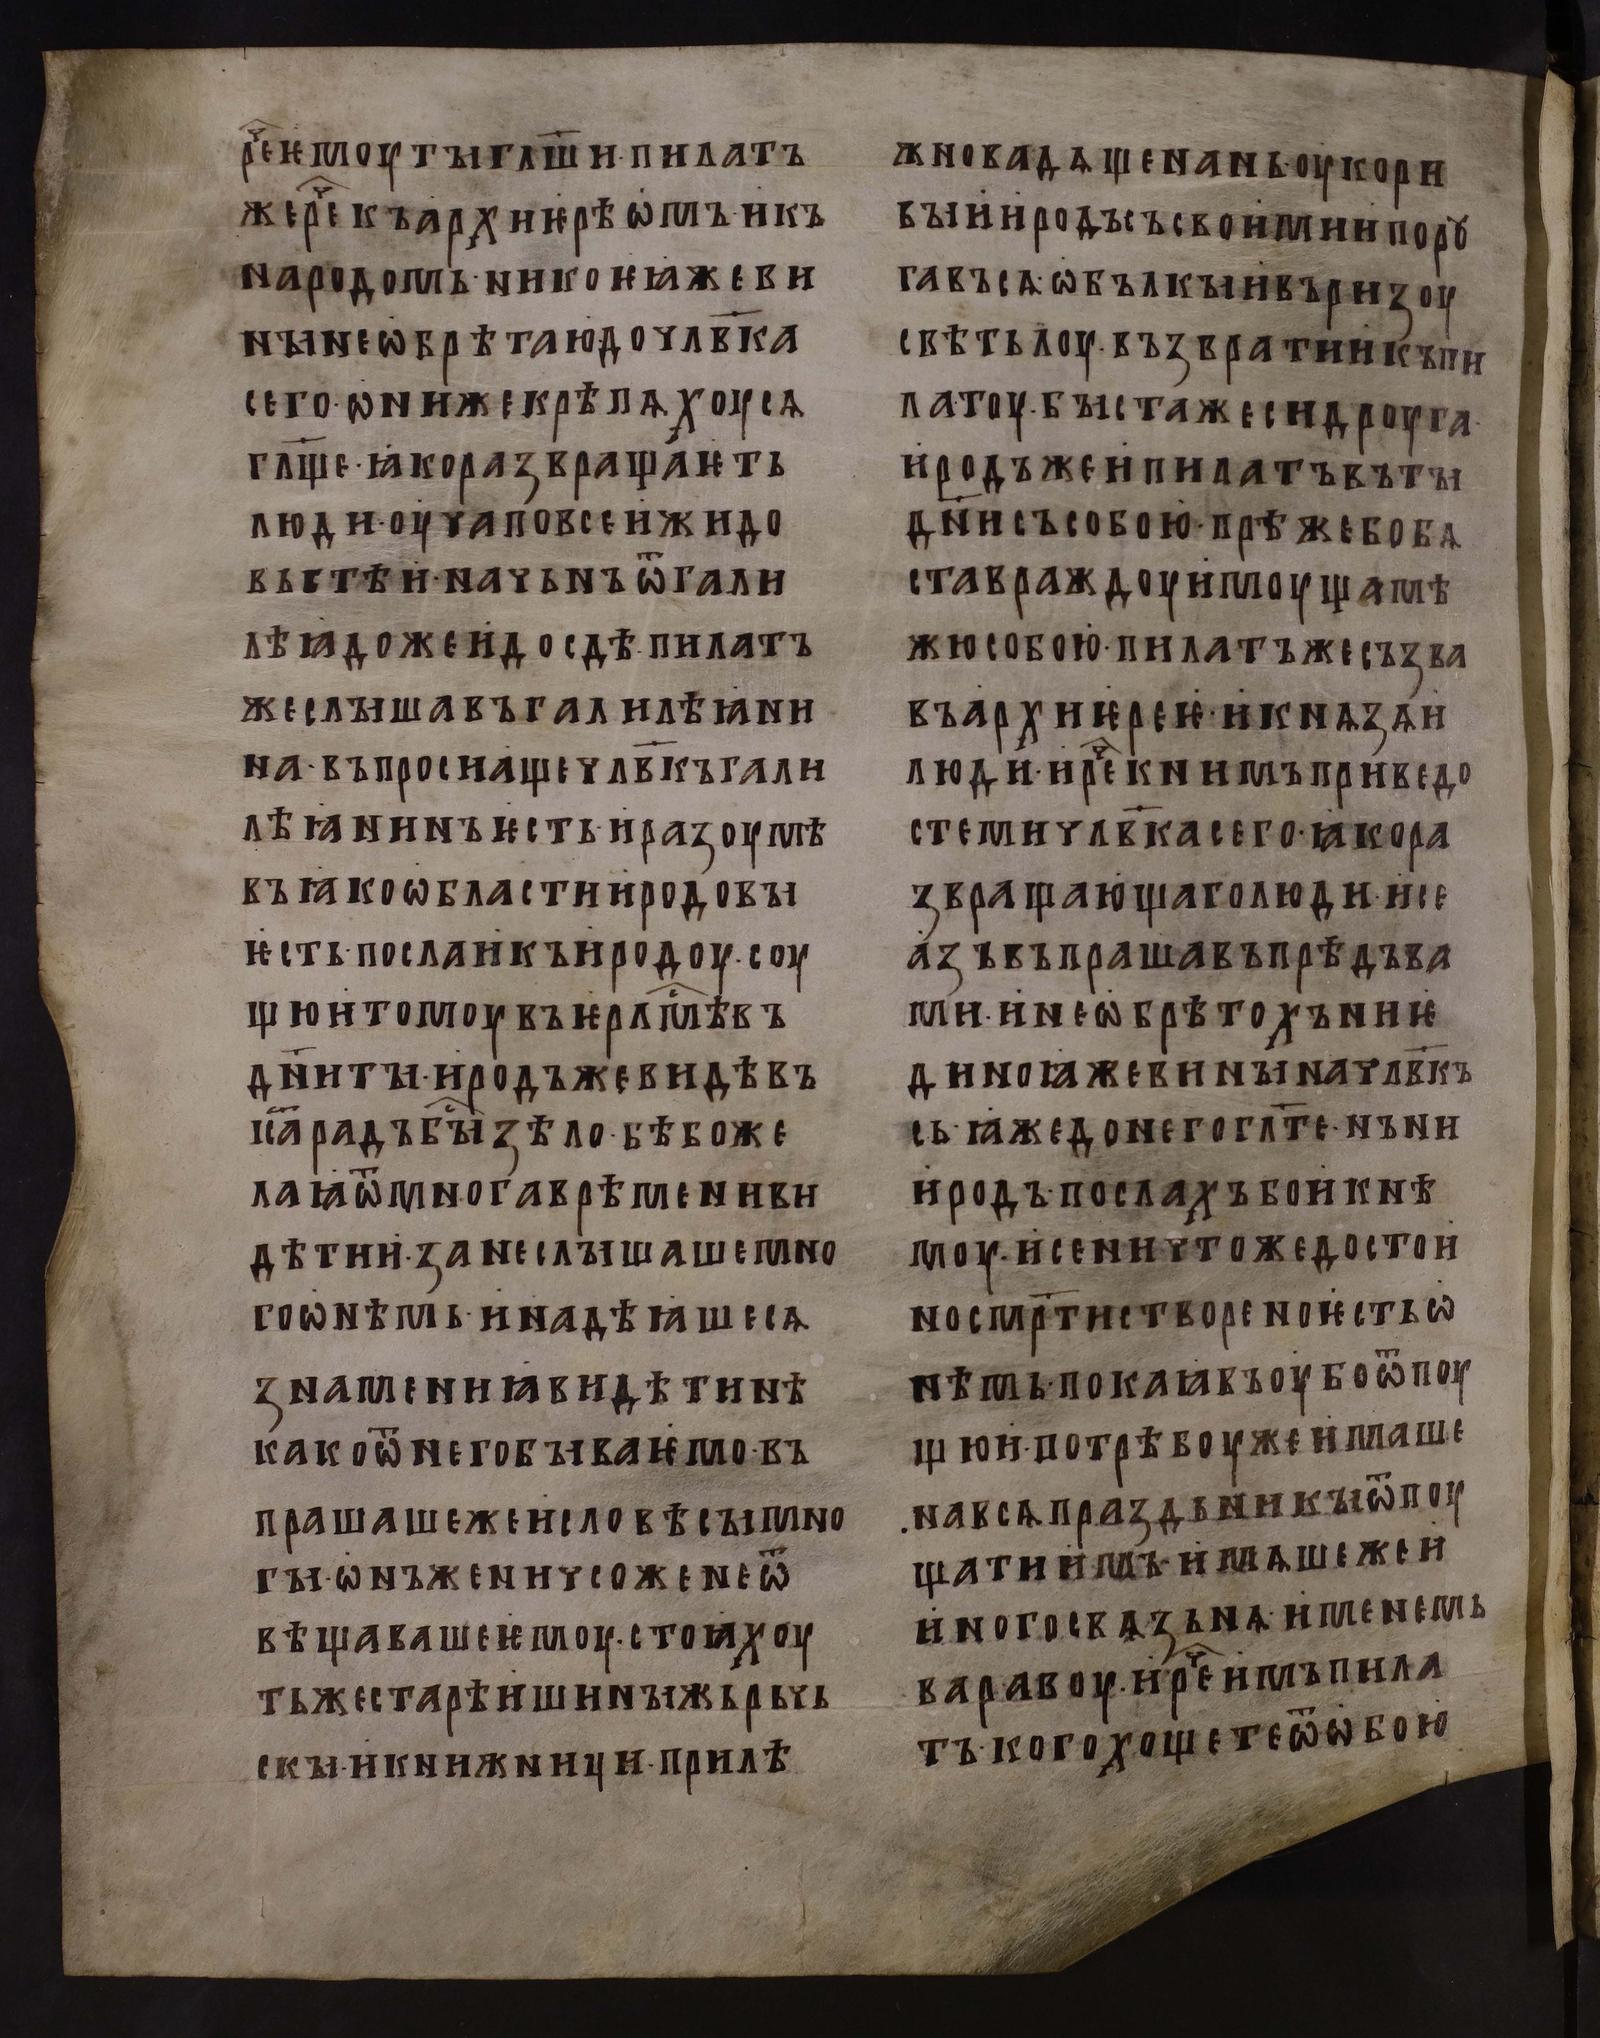 рⷱ҇еѥмоутыглш҃и·пилатъ
жерⷱ҇екъархиѥрѣѡмъ·икъ
народомь·никоѥꙗжеви
нынеѡбрѣтаюдочлв҃ка
сего·ѡнижекрѣплѧхоусѧ
глщ҃е·ꙗкоразвращаѥть
люди·оучаповсеижидо
вьстѣи·наченъѿгали
лѣꙗдожеидосдѣ·пилатъ
жеслышавъгалилѣꙗни
на·въпросиащечлв҃къгали
лѣꙗнинъѥсть·иразоумѣ
въꙗкоѡбластииродовы
ѥсть·посланкъиродоу·соу
щюитомоувъѥрлⷭ҇мѣвъ
дн҃иты·иродъжевидѣвъ
іс҃арадъбⷭ҇ызѣло·бѣбоже
лаꙗѿмногаврѣмениви
дѣтии·занеслышашемно
гоѡнѣмь·инадѣꙗшесѧ
знамениꙗвидѣтинѣ
какоѿнегобываѥмо·въ
прашашежеисловѣсымно
гы·ѡнъженичсоженеѿ
вѣщавашеѥмоу·стоꙗхоу
тьжестарѣишиныжьрьчь
скы·икнижници·прилѣ
жновадѧщенань·оукори
выииродъсъсвоимииниорꙋ
гавъсѧ·ѡбълкыивъризоу
свѣтьлоу·възвратиикъпи
латоу·быстажесидроуга·
иродъжеипилатъвъты
дн҃исъсобою·прѣжебобѧ
ставраждоуимоущамѣ
жюсобою·пилатъжесъзва
въархиѥреѥ·икнѧзѧи
люди·ирⷱ҇екнимъприведо
стемичлв҃касего·ꙗкора
звращающаголюди·исе
азъвъпрашавъпрѣдъва
ми·инеѡбрѣтохъниѥ
диноꙗжевиныначлв҃къ
сь·ꙗжедонегоглт҃е·нъни
иродъ·послахъбоикнѣ
моу·исеничтожедостои
носмр҃тистворенопѥстьѡ
нѣмь·показавъоубоѿпоу
щюи·потрѣбоужеимаше
навсѧпраздьникыѿпоу
щатиимъ·имѧшежеи
иногосвѧзьнѧ·именемь
варавоу·ирⷱ҇еимъпила
тъ·когохощетеѿѡбою